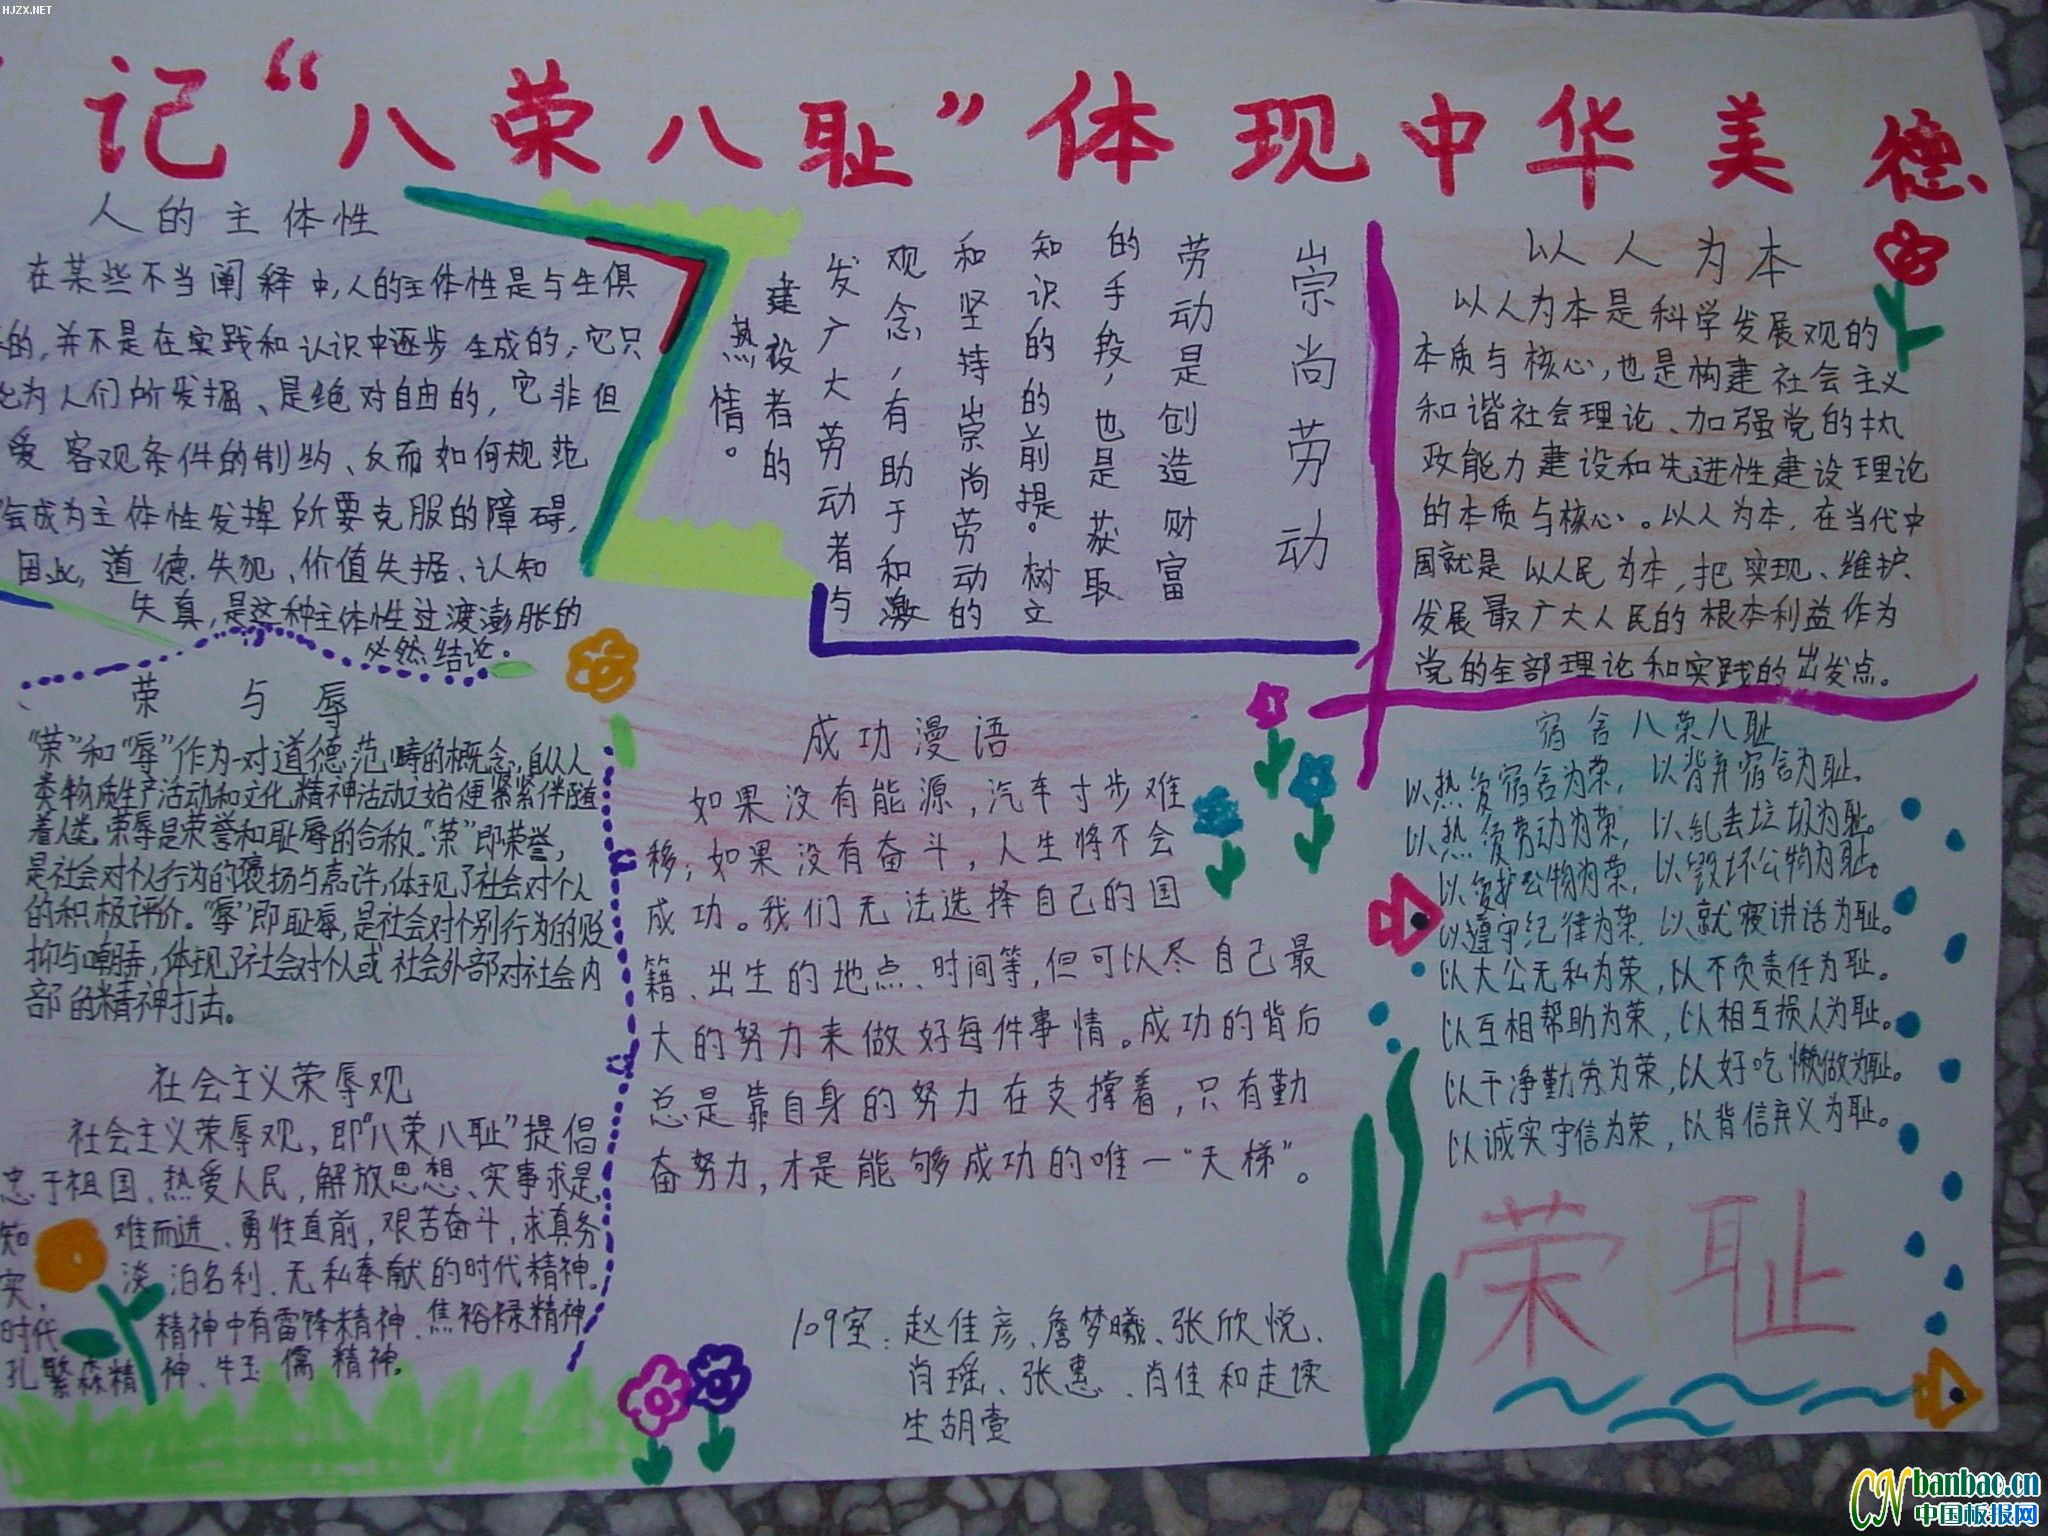 HJZX.NET
记“八荣八耻”体现中华美德
人的主体性
在某些不当阐释中,人的主体性是与生俱
的,并不是在实践和认识中逐步生成的,它只
为人们所发掘、是绝对自由的,它非但
受客观条件的制约、反而如何规范
会成为主体性发挥所要克服的障碍,
因此,道德失犯、价值失据、认知
失真,是这种主体性过渡澎胀的
必然结论。
荣与辱
“荣”和“辱”作为一对道德范畴的概念,自从人
类物质生产活动和文化、精神活动之始便紧紧伴随
着人类。荣辱是荣誉和耻辱的合称。“荣”即荣誉,
是社会对个人行为的褒扬与嘉许,体现了社会对个人
的积极评价。“辱”即耻辱,是社会对个别行为的贬
抑与嘲弄,体现了社会对个人或社会外部对社会内
部的精神打击。
社会主义荣辱观
社会主义荣辱观,即“八荣八耻”提倡
忠于祖国、热爱人民,解放思想、实事求是,
知难而进、勇往直前,艰苦奋斗,求真务
实,淡泊名利、无私奉献的时代精神。
时代精神中有雷锋精神、焦裕禄精神
孔繁森精神、牛玉儒精神。
崇尚劳动
劳动是创造财富
的手段,也是获取
知识的的前提。树立
和坚持崇尚劳动的
观念,有助于和激
发广大劳动者与
建设者的
热情。
成功漫语
如果没有能源,汽车寸步难
移;如果没有奋斗,人生将不会
成功。我们无法选择自己的国
籍、出生的地点、时间等,但可以尽自己最
大的努力来做好每件事情。成功的背后
总是靠自身的努力在支撑着,只有勤
奋努力,才是能够成功的唯一“天梯”。
109室:赵佳彦、詹梦曦、张欣悦、
肖瑶、张惠、肖佳和走读
生胡壹
以人为本
以人为本是科学发展观的
本质与核心,也是构建社会主义
和谐社会理论、加强党的执
政能力建设和先进性建设理论
的本质与核心。以人为本,在当代中
国就是以人民为本,把实现、维护、
发展最广大人民的根本利益作为
党的全部理论和实践的出发点。
宿舍八荣八耻
以热爱宿舍为荣,以背弃宿舍为耻。
以热爱劳动为荣,以乱丢垃圾为耻。
以爱护公物为荣,以毁坏公物为耻。
以遵守纪律为荣,以就寝讲话为耻。
以大公无私为荣,以不负责任为耻。
以互相帮助为荣,以相互损人为耻。
以干净勤劳为荣,以好吃懒做为耻。
以诚实守信为荣,以背信弃义为耻。
荣耻
CN banbao.cn
中国板报网